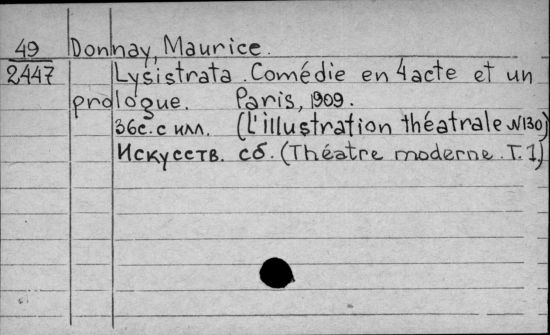 49 Donnay, Maurice.
2447 Lysistrata. Comédie en 4 acte et un
prologue. Paris, 1909.
36с. с илл. (L'illustration théatrale №130)
Искусств. сб. (Théatre moderne. T. 1)